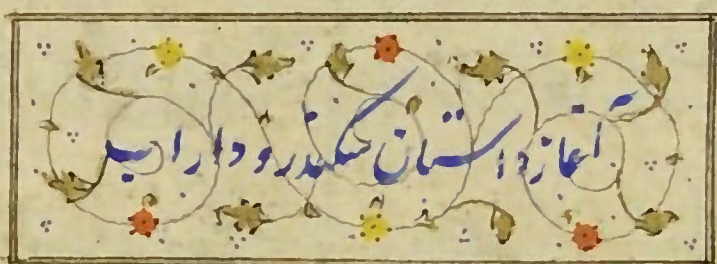 آغاز داستان سکندر و دارا